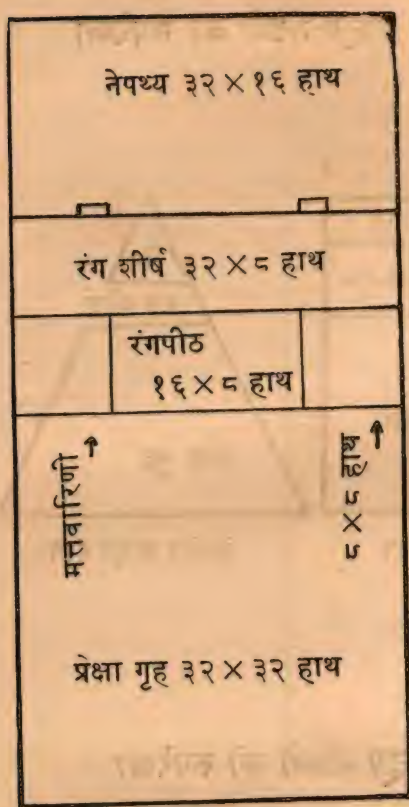 नेपथ्य ३२ × १६ हाथ
रंग शीर्ष ३२ × ८ हाथ
रंगपीठ
१६ × ८ हाथ
मत्तवारिणी
८ × ८ हाथ
प्रेक्षा गृह ३२ × ३२ हाथ